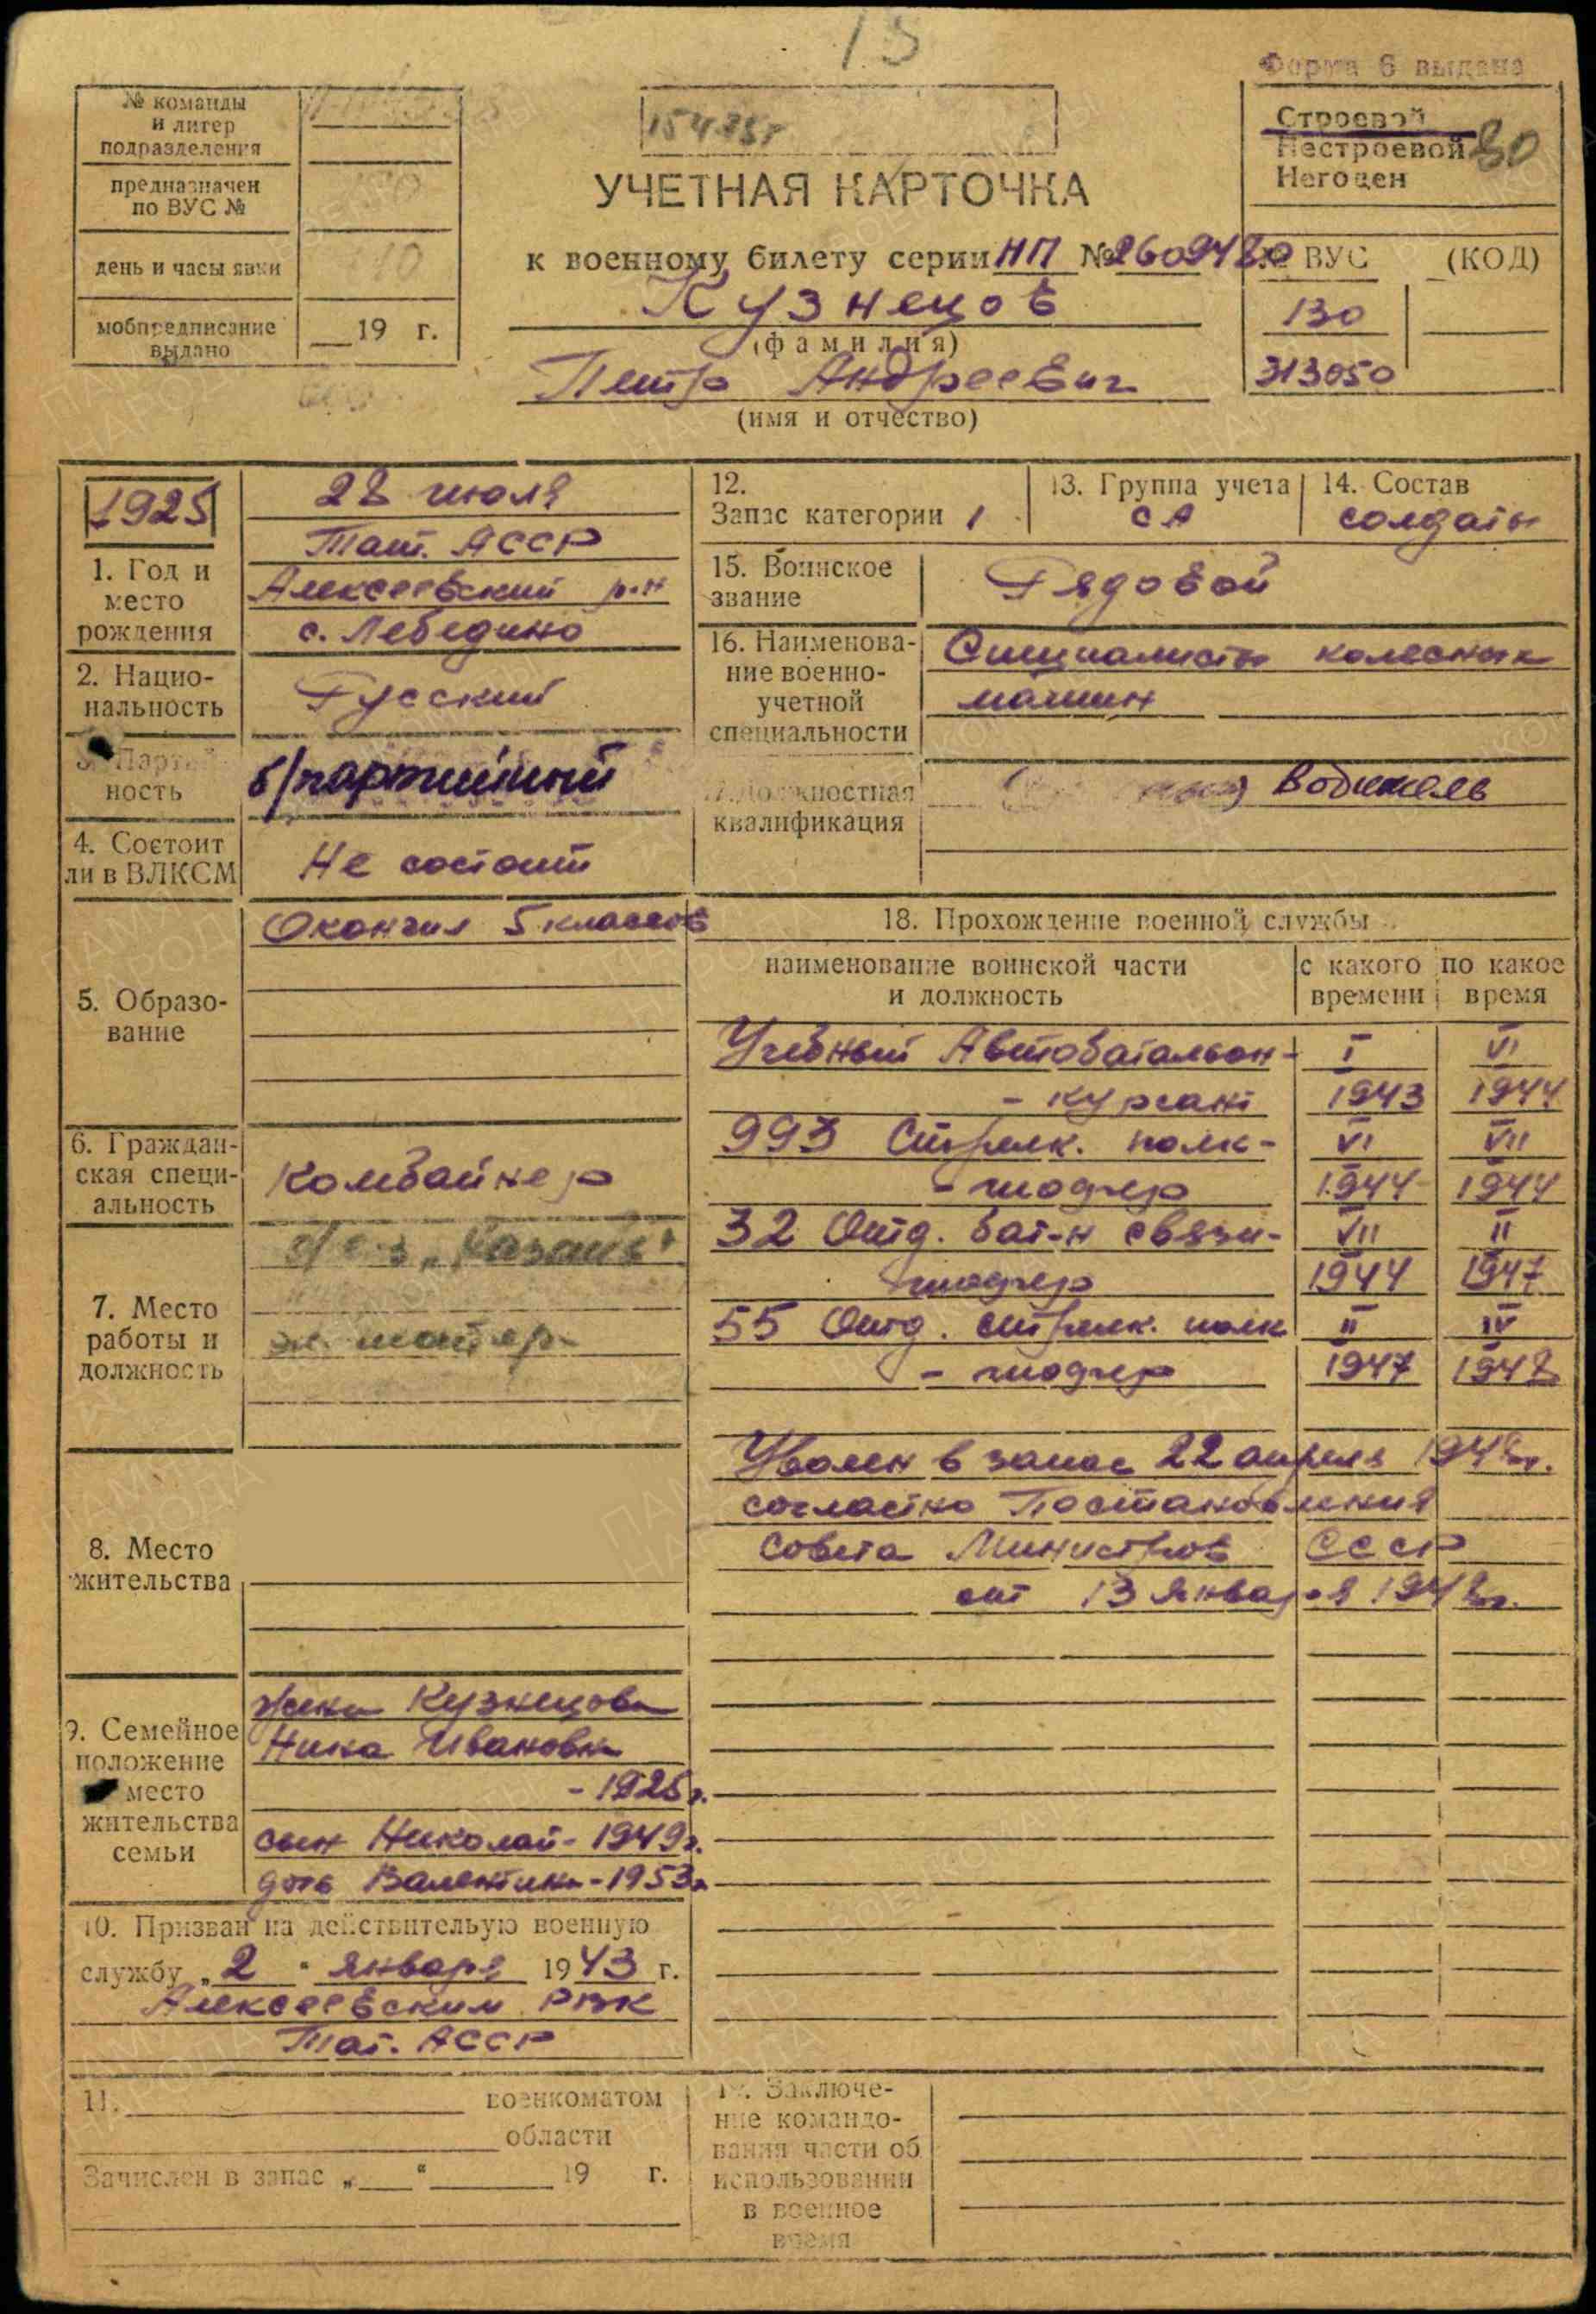 15
Форма 6 выдана
№ команды
и литер
подразделения
предназначен
по ВУС №
день и часы явки
мобпредписание
выдано
19 г.
УЧЕТНАЯ КАРТОЧКА
к военному билету серии НП №2609480
Кузнецов
(фамилия)
Петр Андреевич
(имя и отчество)
Строевой
Нестроевой
Негоден
80
№ ВУС (КОД)
130
313050
1925
1. Год и
место
рождения
28 июля
Тат. АССР
Алексеевский р-н
с. Лебедино
2. Нацио-
нальность
Русский
3. Партий
ность
б/партийный
4. Состоит
ли в ВЛКСМ
Не состоит
5. Образо-
вание
Окончил 5 классов
6. Граждан-
ская специ-
альность
Комбайнер
7. Место
работы и
должность
"Казань"
8. Место
жительства
9. Семейное
положение
место
жительства
семьи
жена Кузнецова
Нина Ивановна
- 1925г.
сын Николай - 1949г.
дочь Валентина - 1953г
10. Призван на действительую военную
службу „2“ января 1943 г.
Алексеевским РВК
Тат. АССР
11. военкоматом
области
Зачислен в запас „ “ 19 г.
12.
Запас категории 1
13. Группа учета
СА
14. Состав
солдаты
15. Воинское
звание
Рядовой
16. Наименова-
ние военно-
учетной
специальности
Специалисты колесных
машин
17. Должностная
квалификация
Водитель
18. Прохождение военной службы
наименование воинской части
и должность
с какого
времени
по какое
время
Учебный Автобатальон - I VI
- курсант 1943 1944
993 Стрелк. полк - VI VII
- шофер 1944 1944
32 Отд. бат-н связи - VII II
шофер 1944 1947
55 Отд. стрелк. полк II IV
- шофер 1947 1948
Уволен в запас 22 апреля 1948г.
согласно Постановления
Совета Министров СССР
от 13 января 1948г.
19. Заключе-
ние командо-
вания части об
использовании
в военное
время